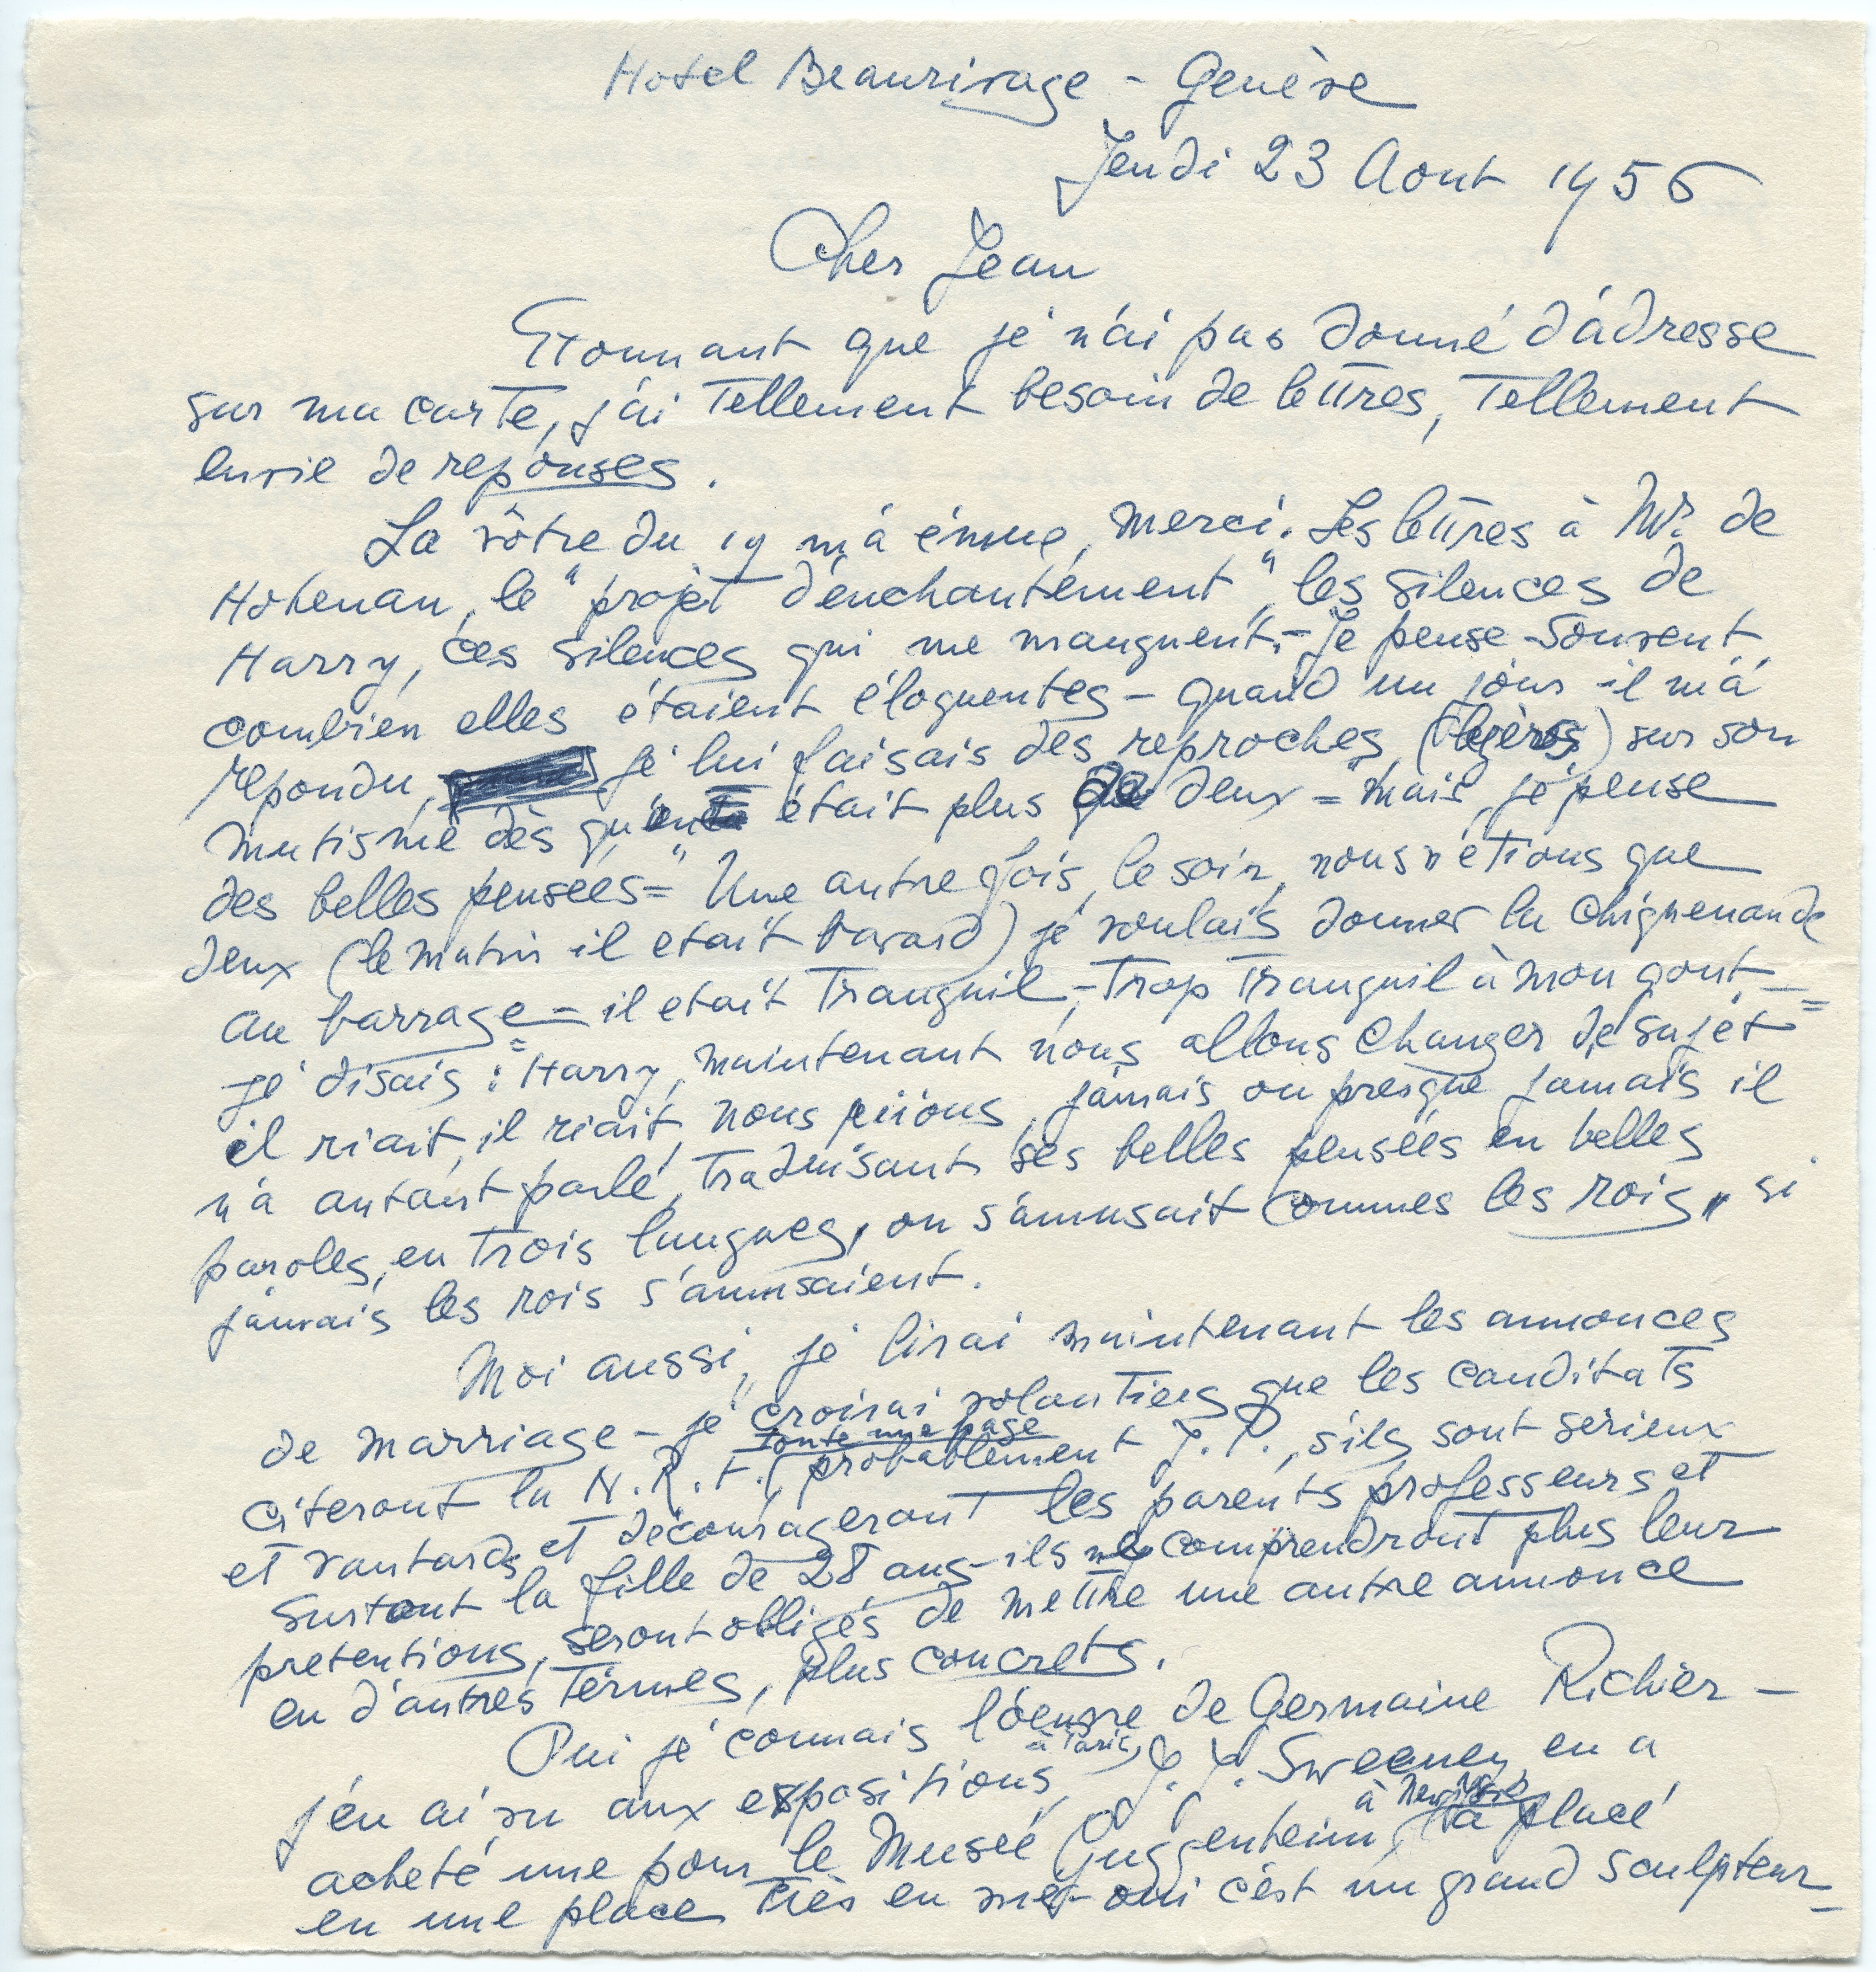 Hotel Beaurivage - Genève
Jeudi 23 Aout 1956
Cher Jean
Etonnant que je n'ai pas donné d'adresse
sur ma carte, j'ai tellement besoin de lettres, tellement
envie de reponses.
La vôtre du 19 m'a émue, merci. Les lettres à Mr de
Hohenau, le "projet d'enchantement", les silences de
Harry, ces silences qui me manquent. - Je pense souvent
combien elles étaient éloquentes - quand un jour il m'a
repondu, je lui faisais des reproches (légères) sur son
mutisme dès qu'on était plus de deux = "mais, je pense
des belles pensées" = Une autre fois, le soir, nous n'étions que
deux (le matin il etait bavard) je voulais donner la chiquenaude
au barrage = il etait tranquil - trop tranquil à mon gout -
je disais : "Harry, maintenant nous allons changer de sujet" =
il riait, il riait, nous riions, jamais ou presque jamais il
n'a autant parlé, traduisant ses belles pensées en belles
paroles, en trois langues, on s'amusait commes les rois, si
jamais les rois s'amusaient.
Moi aussi, je lirai maintenant les annonces
de marriage - je croirai volontiers que les canditats
citeront la N.R.F. (toute une page probablement J.P., s'ils sont serieux
et vantards et décourageront les parents professeurs et
surtout la fille de 28 ans - ils ne comprendront plus leur
pretentions, seront obligés de mettre une autre annonce
en d'autres termes, plus concrets.
Oui je connais l'oeuvre de Germaine Richier -
j'en ai vu aux expositions à Paris, J. J. Sweeney en a
acheté une pour le Musée Guggenheim, à New York, l'a placé
en une place très en vue - oui c'est un grand sculpteur =